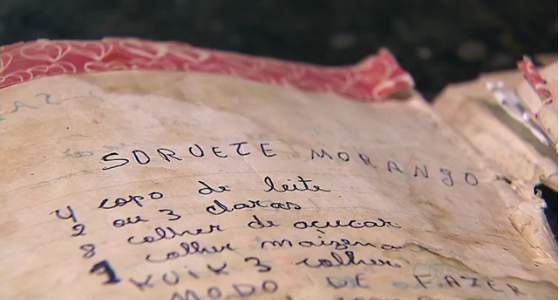 SORVETE MORANGO
4 copo de leite
2 ou 3 claras
8 colher de açucar
1 colher maizena
KUIK 3 colher
MODO DE FAZER